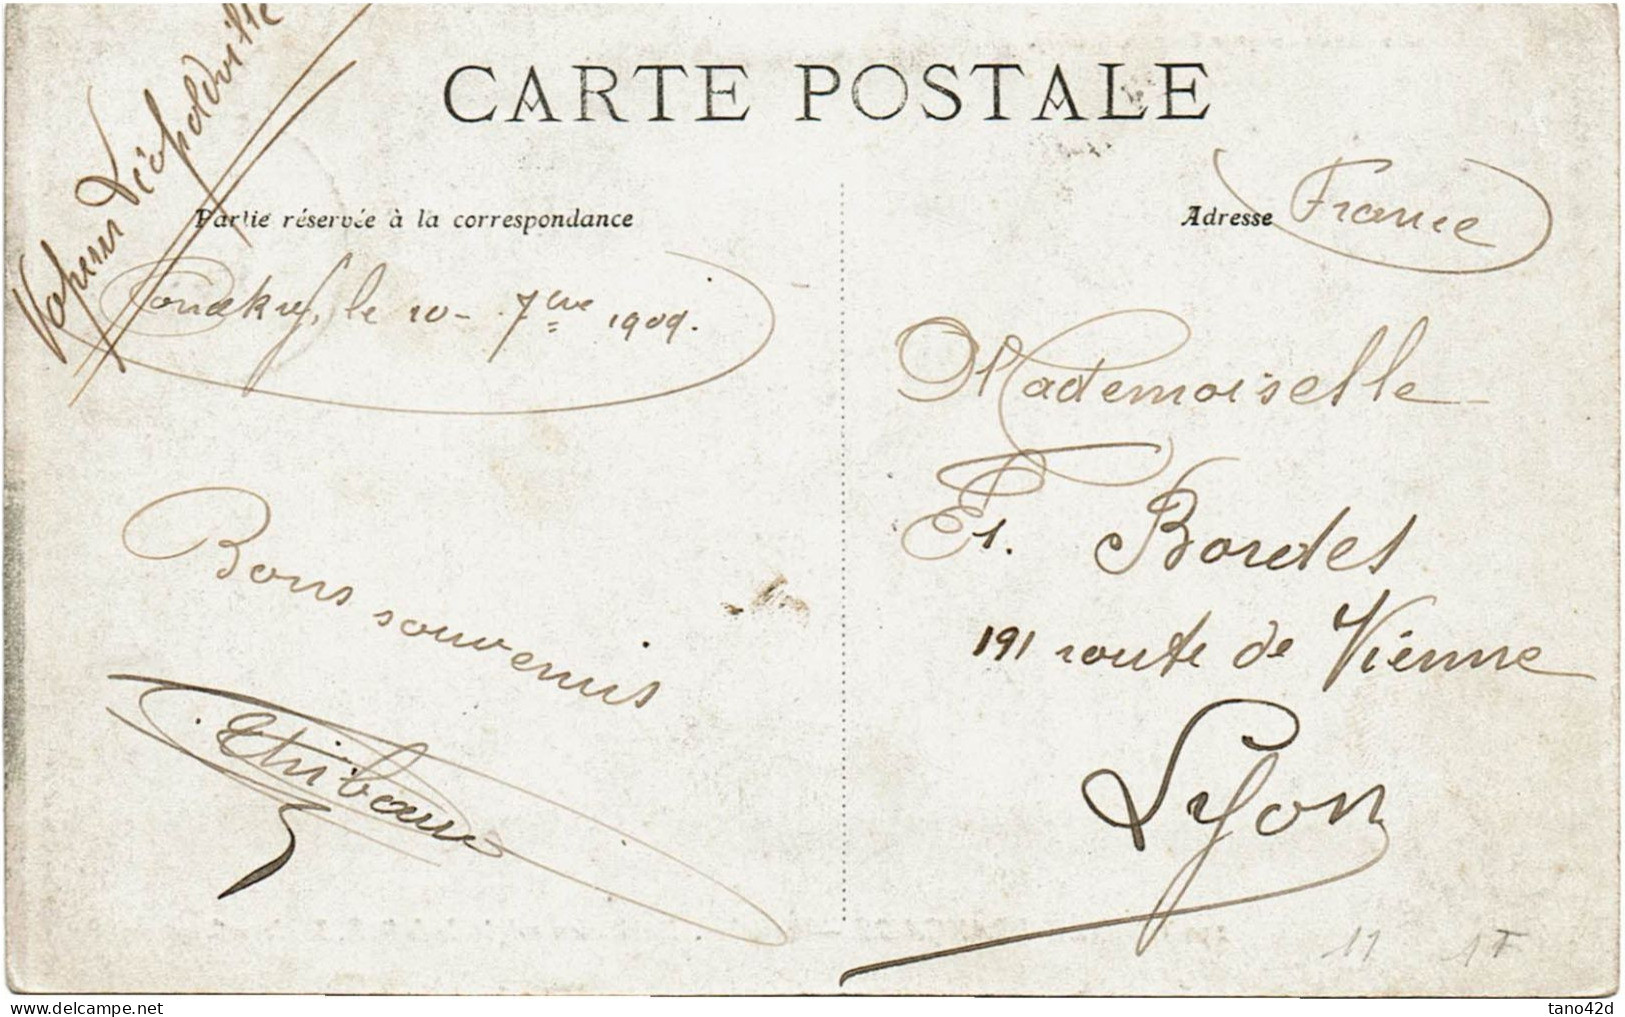 Vapeur Léopoldville
CARTE POSTALE
Partie réservée à la correspondance
Adresse France
Conakry, le 10 - 7bre 1909.
Mademoiselle
Et. Bordet
191 route de Vienne
Lyon
Bons souvenirs
Ethibeau
11 1F
delcampe.net
tano42d